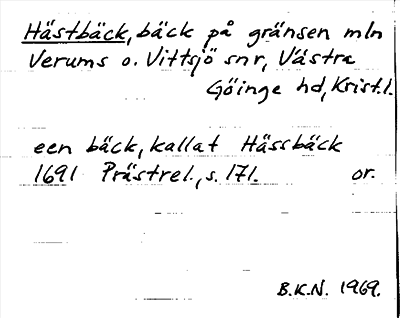 Hästbäck, bäck på gränsen mln
Verums o. Vittsjö snr, Västra
Göinge hd, Krist.l.
een bäck, kallat Hässbäck
1691 Prästrel., s. 171. or.
B.K.N. 1969.